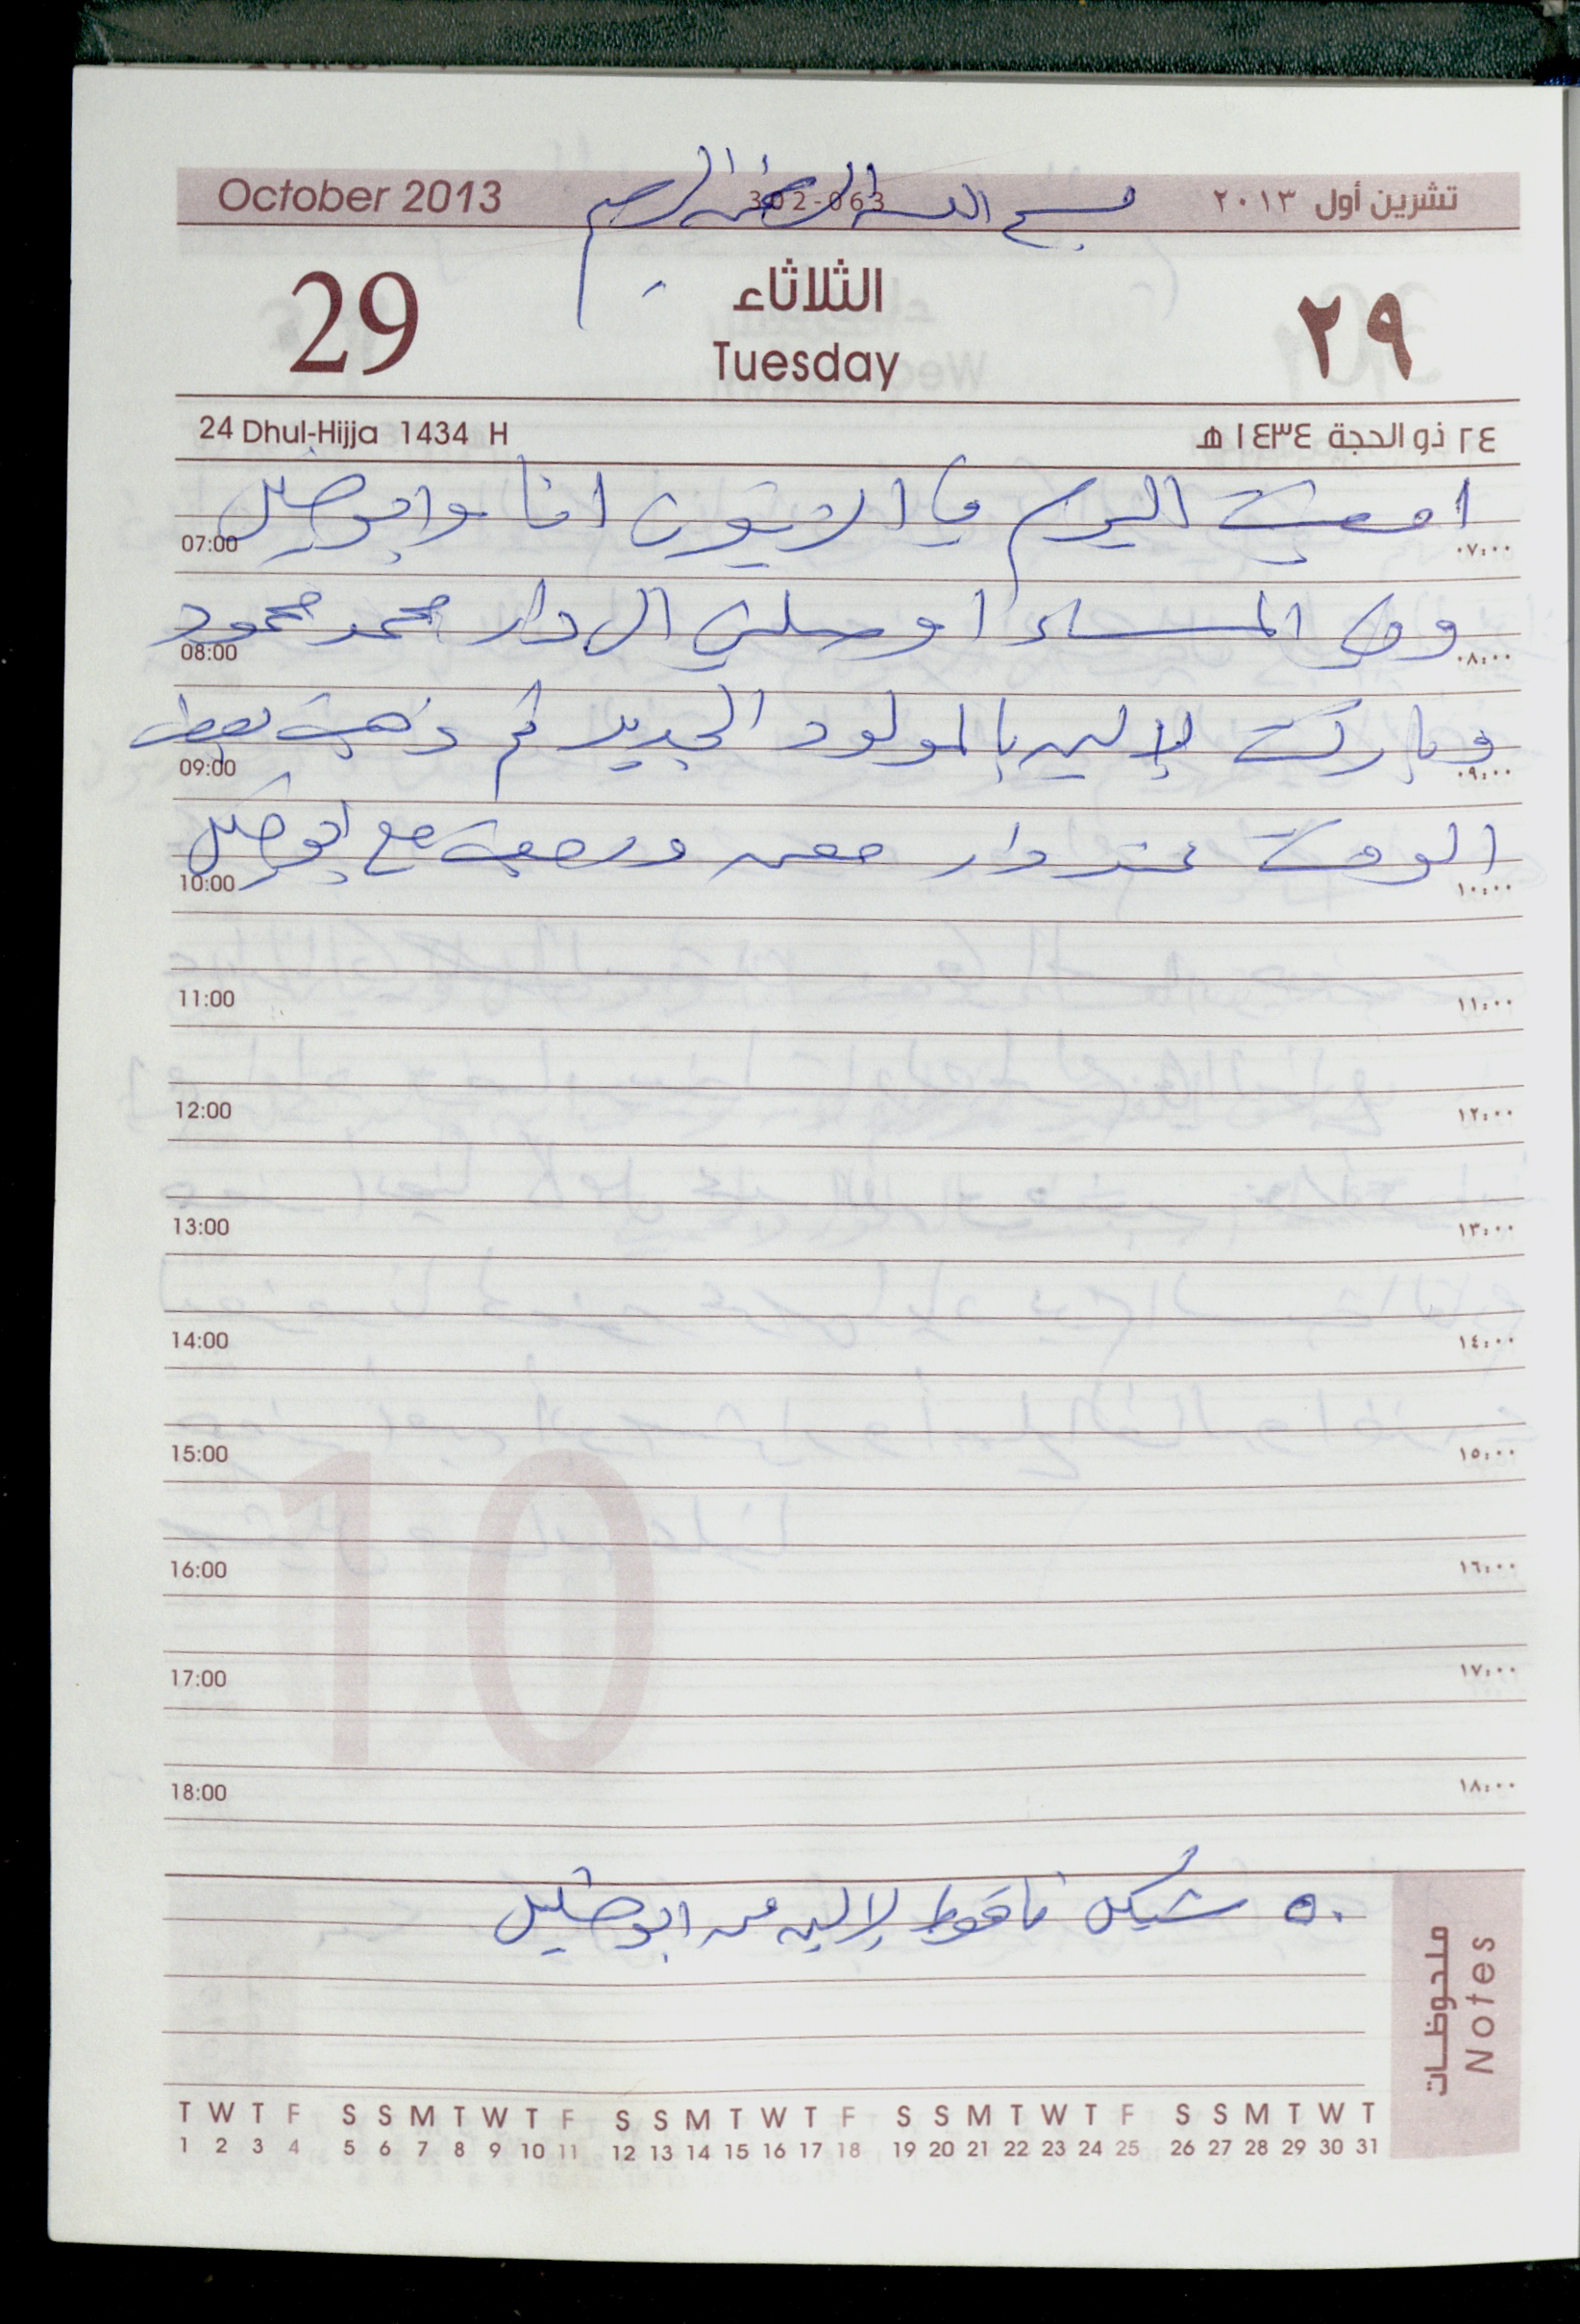 October 2013 302-063 تشرين أول ٢٠١٣
بسم الله الرحمن الرحيم
29 الثلاثاء ٢٩
Tuesday
24 Dhul-Hijja 1434 H ٢٤ ذو الحجة ١٤٣٤ هـ
امضيت اليوم في الزيتون انا وابو خليل
07:00 ٠٧:٠٠
وفي المساء اوصلني ال دار محمد محمود
08:00 ٠٨:٠٠
وباركت لإلين بالمولود الجديد ثم ذهبت بعض
09:00 ٠٩:٠٠
الوقت عند دار معن ورجعت مع ابو خليل
10:00 ١٠:٠٠
11:00 ١١:٠٠
12:00 ١٢:٠٠
13:00 ١٣:٠٠
14:00 ١٤:٠٠
15:00 ١٥:٠٠
10
16:00 ١٦:٠٠
17:00 ١٧:٠٠
18:00 ١٨:٠٠
٥٠ شيكل نقوط لإلين من ابو خليل
ملحوظات
Notes
T W T F S S M T W T F S S M T W T F S S M T W T F S S M T W T
1 2 3 4 5 6 7 8 9 10 11 12 13 14 15 16 17 18 19 20 21 22 23 24 25 26 27 28 29 30 31